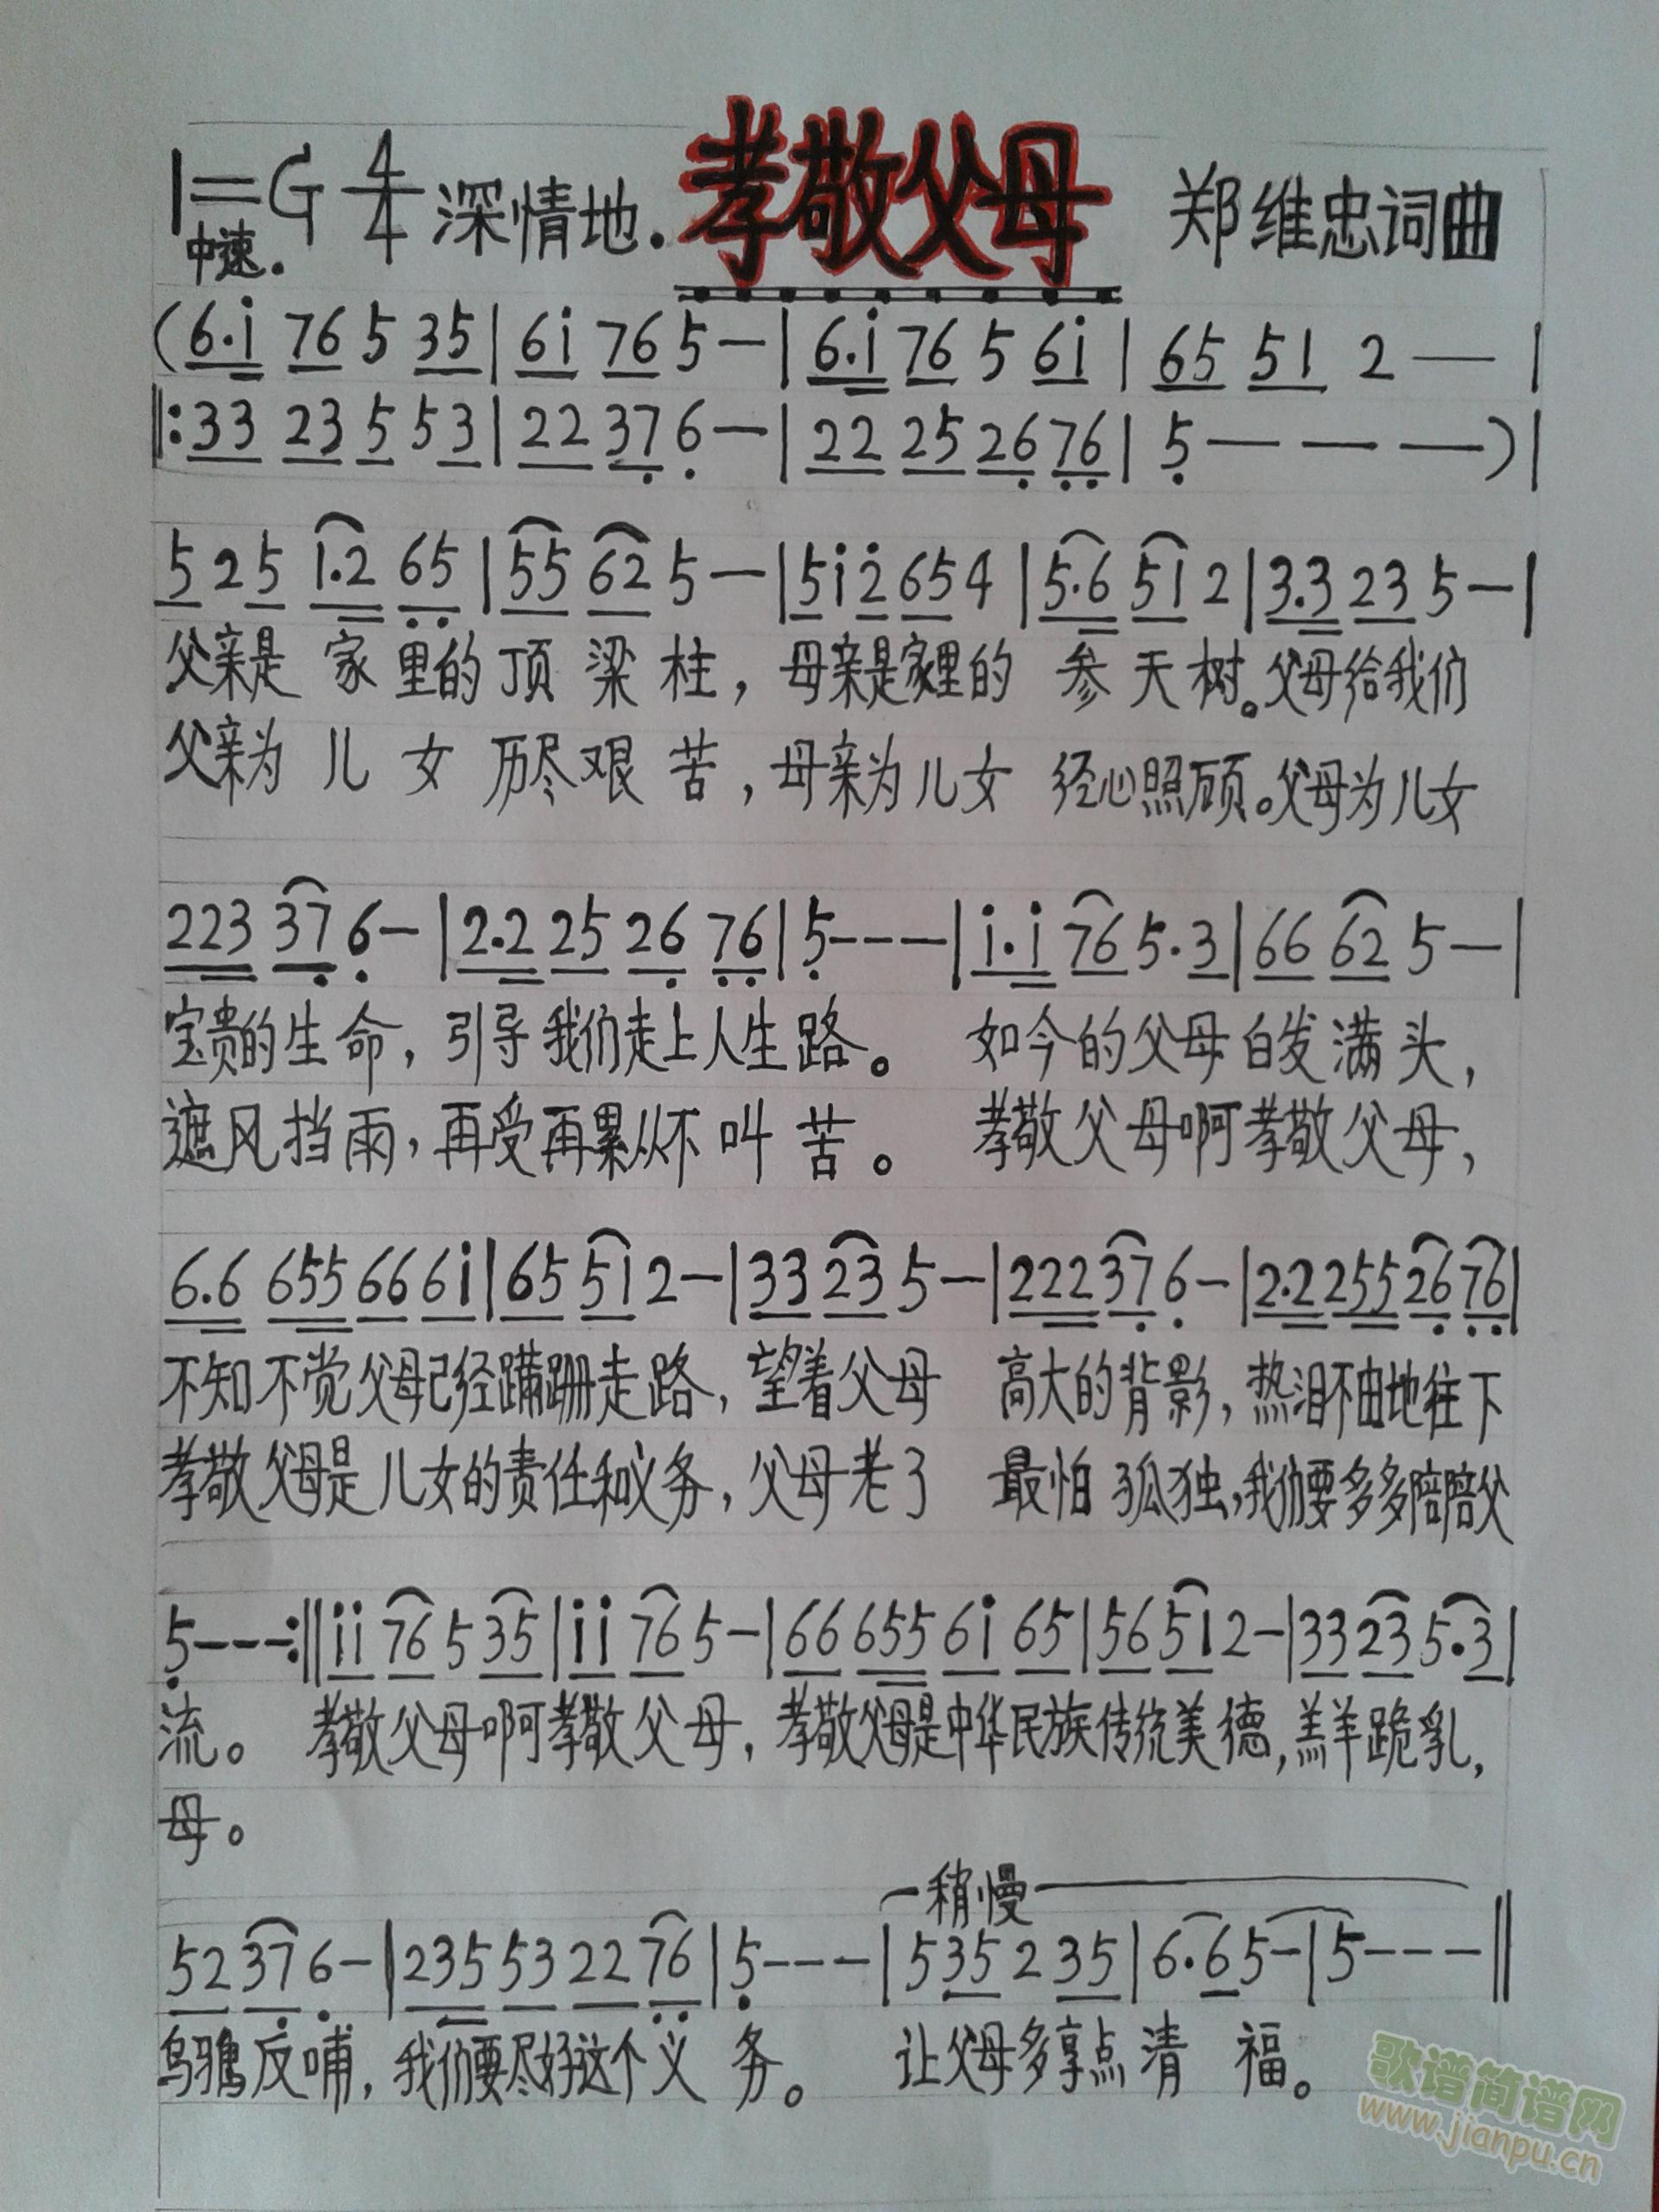 1=G 4/4 深情地. 孝敬父母 郑维忠词曲
中速.
(6.i 76 5 35|6i 76 5—|6.i 76 5 6i|65 51 2—|
‖:33 23 5 53|22 37 6—|22 25 26 76|5———)|
5 2 5 1.2 65|55 62 5—|5i2 65 4|5.6 51 2|3.3 23 5—|
父亲是 家里的顶 梁 柱，母亲是家里的 参天树。父母给我们
父亲为 儿 女 历尽艰 苦，母亲为儿女 经心照顾。父母为儿女
223 37 6—|2.2 25 26 76|5———|i.i 76 5.3|66 62 5—|
宝贵的生命，引导我们走上人生路。 如今的父母白发满头，
遮风挡雨，再受再累从不叫 苦。 孝敬父母啊孝敬父母，
6.6 655 66 6i|65 51 2—|33 23 5—|222 37 6—|2.2 255 26 76|
不知不觉父母已经蹒跚走路，望着父母 高大的背影，热泪不由地往下
孝敬父母是儿女的责任和义务，父母老了 最怕孤独，我们要多多陪陪父
5———:‖ii 76 5 35|ii 76 5—|66 655 6i 65|56 51 2—|33 23 5.3|
流。 孝敬父母啊孝敬父母，孝敬父母是中华民族传统美德，羔羊跪乳，
母。
稍慢
52 37 6—|235 53 22 76|5———|5 35 2 35|6.6 5—|5———‖
乌鸦反哺，我们要尽好这个义 务。 让父母多享点清 福。
歌谱简谱网
www.jianpu.cn